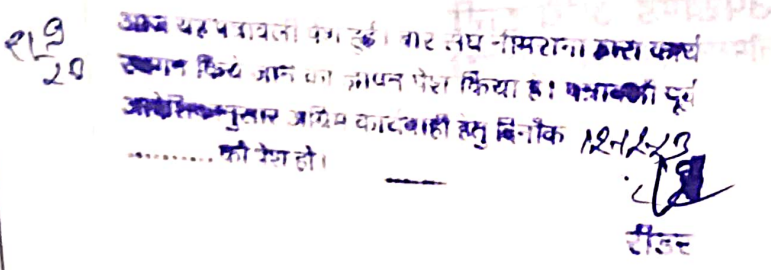 21/9/20
आज यह पत्रावली पेश हुई। बार संघ नीमराना द्वारा कार्य
स्थगन किये जाने का ज्ञापन पेश किया है। पत्रावली पूर्व
आदेशानुसार अग्रिम कार्यवाही हेतु दिनांक
.......... को पेश हो।
रीडर